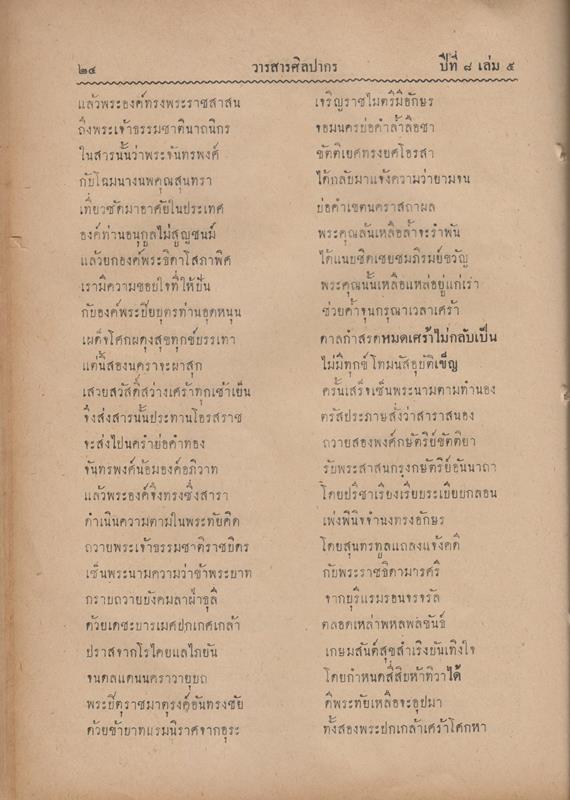 ๒๔ วารสารศิลปากร ปีที่ ๘ เล่ม ๕
แล้วพระองค์ทรงพระราชสาสน เจริญราชไมตรีมีอักษร
ถึงพระเจ้าธรรมชาตินาถนิกร จอมนครย่อคำล้ำลือชา
ในสารนั้นว่าพระจันทรพงศ์ ขัตติเยศทรงยศโอรสา
กับโฉมนางนพคุณสุนทรา ได้กลับมาแจ้งความว่ายามจน
เที่ยวซัดมาอาศัยในประเทศ ย่อคำเขตนคราสถาผล
องค์ท่านอนุกูลไม่สูญชนม์ พระคุณล้นเหลือล้ำจะรำพัน
แล้วยกองค์พระธิดาโสภาพิศ ได้แนบชิดเชยชมภิรมย์ขวัญ
เรามีความชอบใจที่ให้ปัน พระคุณนั้นเหลือแหล่อยู่แก่เรา
กับองค์พระปิยบุตรท่านอุดหนุน ช่วยค้ำจุนกรุณาเวลาเศร้า
เผด็จโศกผดุงสุขทุกข์บรรเทา ดาลกำสรดหมดเศร้าไม่กลับเป็น
แต่นี้สองนคราจะผาสุก ไม่มีทุกข์โทมนัสอุบัติเข็ญ
เสวยสวัสดิ์สว่างเศร้าทุกเช้าเย็น ครั้นเสร็จเซ็นพระนามตามทำนอง
จึงส่งสารนั้นประทานโอรสราช ตรัสประภาษสั่งว่าสาราสนอง
จะส่งไปนคราย่อคำทอง ถวายสองพงศ์กษัตริย์ขัตติยา
จันทรพงศ์น้อมองค์อภิวาท รับพระสาสนกรุงกษัตริย์อันนาถา
แล้วพระองค์จึงทรงซึ่งสารา โดยปรีชาเรียงเรียบระเบียบกลอน
ดำเนินความตามในพระทัยคิด เพ่งพินิจจำนงทรงอักษร
ถวายพระเจ้าธรรมชาติราชบิดร โดยสุนทรทูลแถลงแจ้งคดี
เซ็นพระนามความว่าข้าพระบาท กับพระราชธิดามารศรี
กราบถวายบังคมลาฝ่าธุลี จากบุรีแรมรอนจรจรัล
ด้วยเดชะบารเมศปกเกศเกล้า ตลอดเหล่าพหลพลขันธ์
ปราสจากโรไคยแลไภยัน เกษมสันต์สุขสำเริงบันเทิงใจ
จนดลแดนนคราวายุบถ โดยกำหนดสี่สิบห้าทิวาได้
พระบิตุราชมาตุรงค์อันทรงชัย ดีพระทัยเหลือจะอุปมา
ด้วยข้าบาทแรมนิราศจากธุระ ทั้งสองพระปกเกล้าเศร้าโศกหา